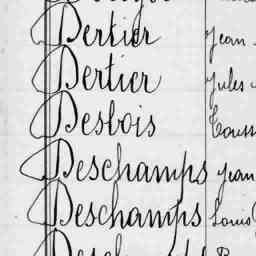 Dertier Jean
Dertier Jules
Desbois
Deschamps Jean
Deschamps Louis